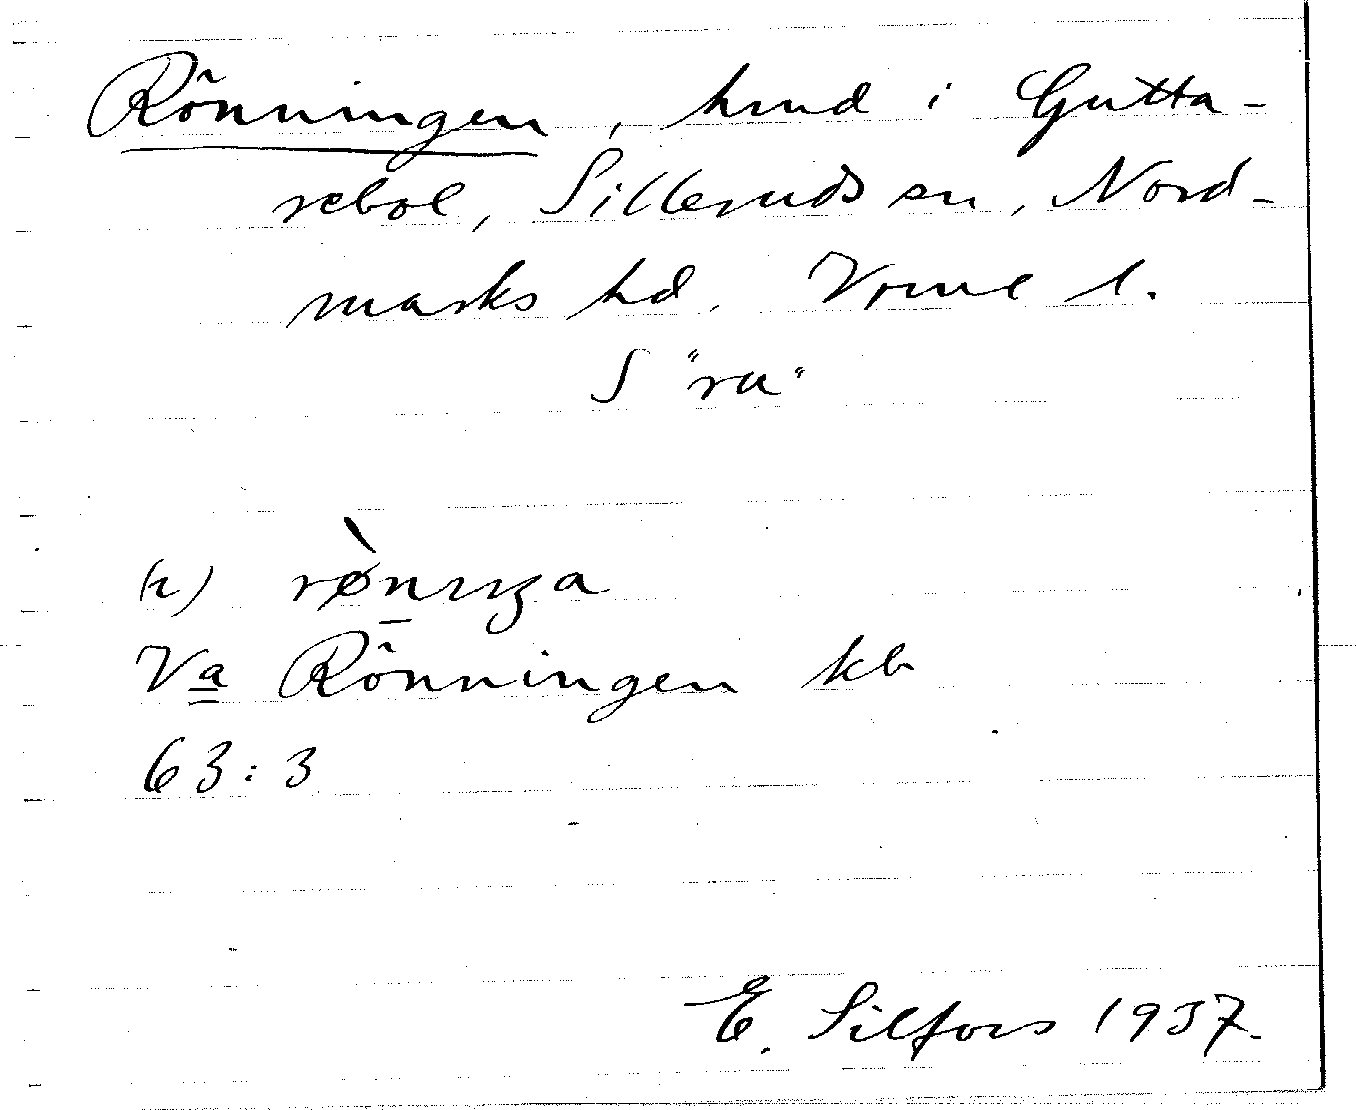 Rönningen, hmd i Gutta-
rebol, Silleruds sn, Nord-
marks hd. Vrml l.
S "ra"
(2) rø̀nıŋa
Va Rönningen kb
63:3
E. Silfors 1937.